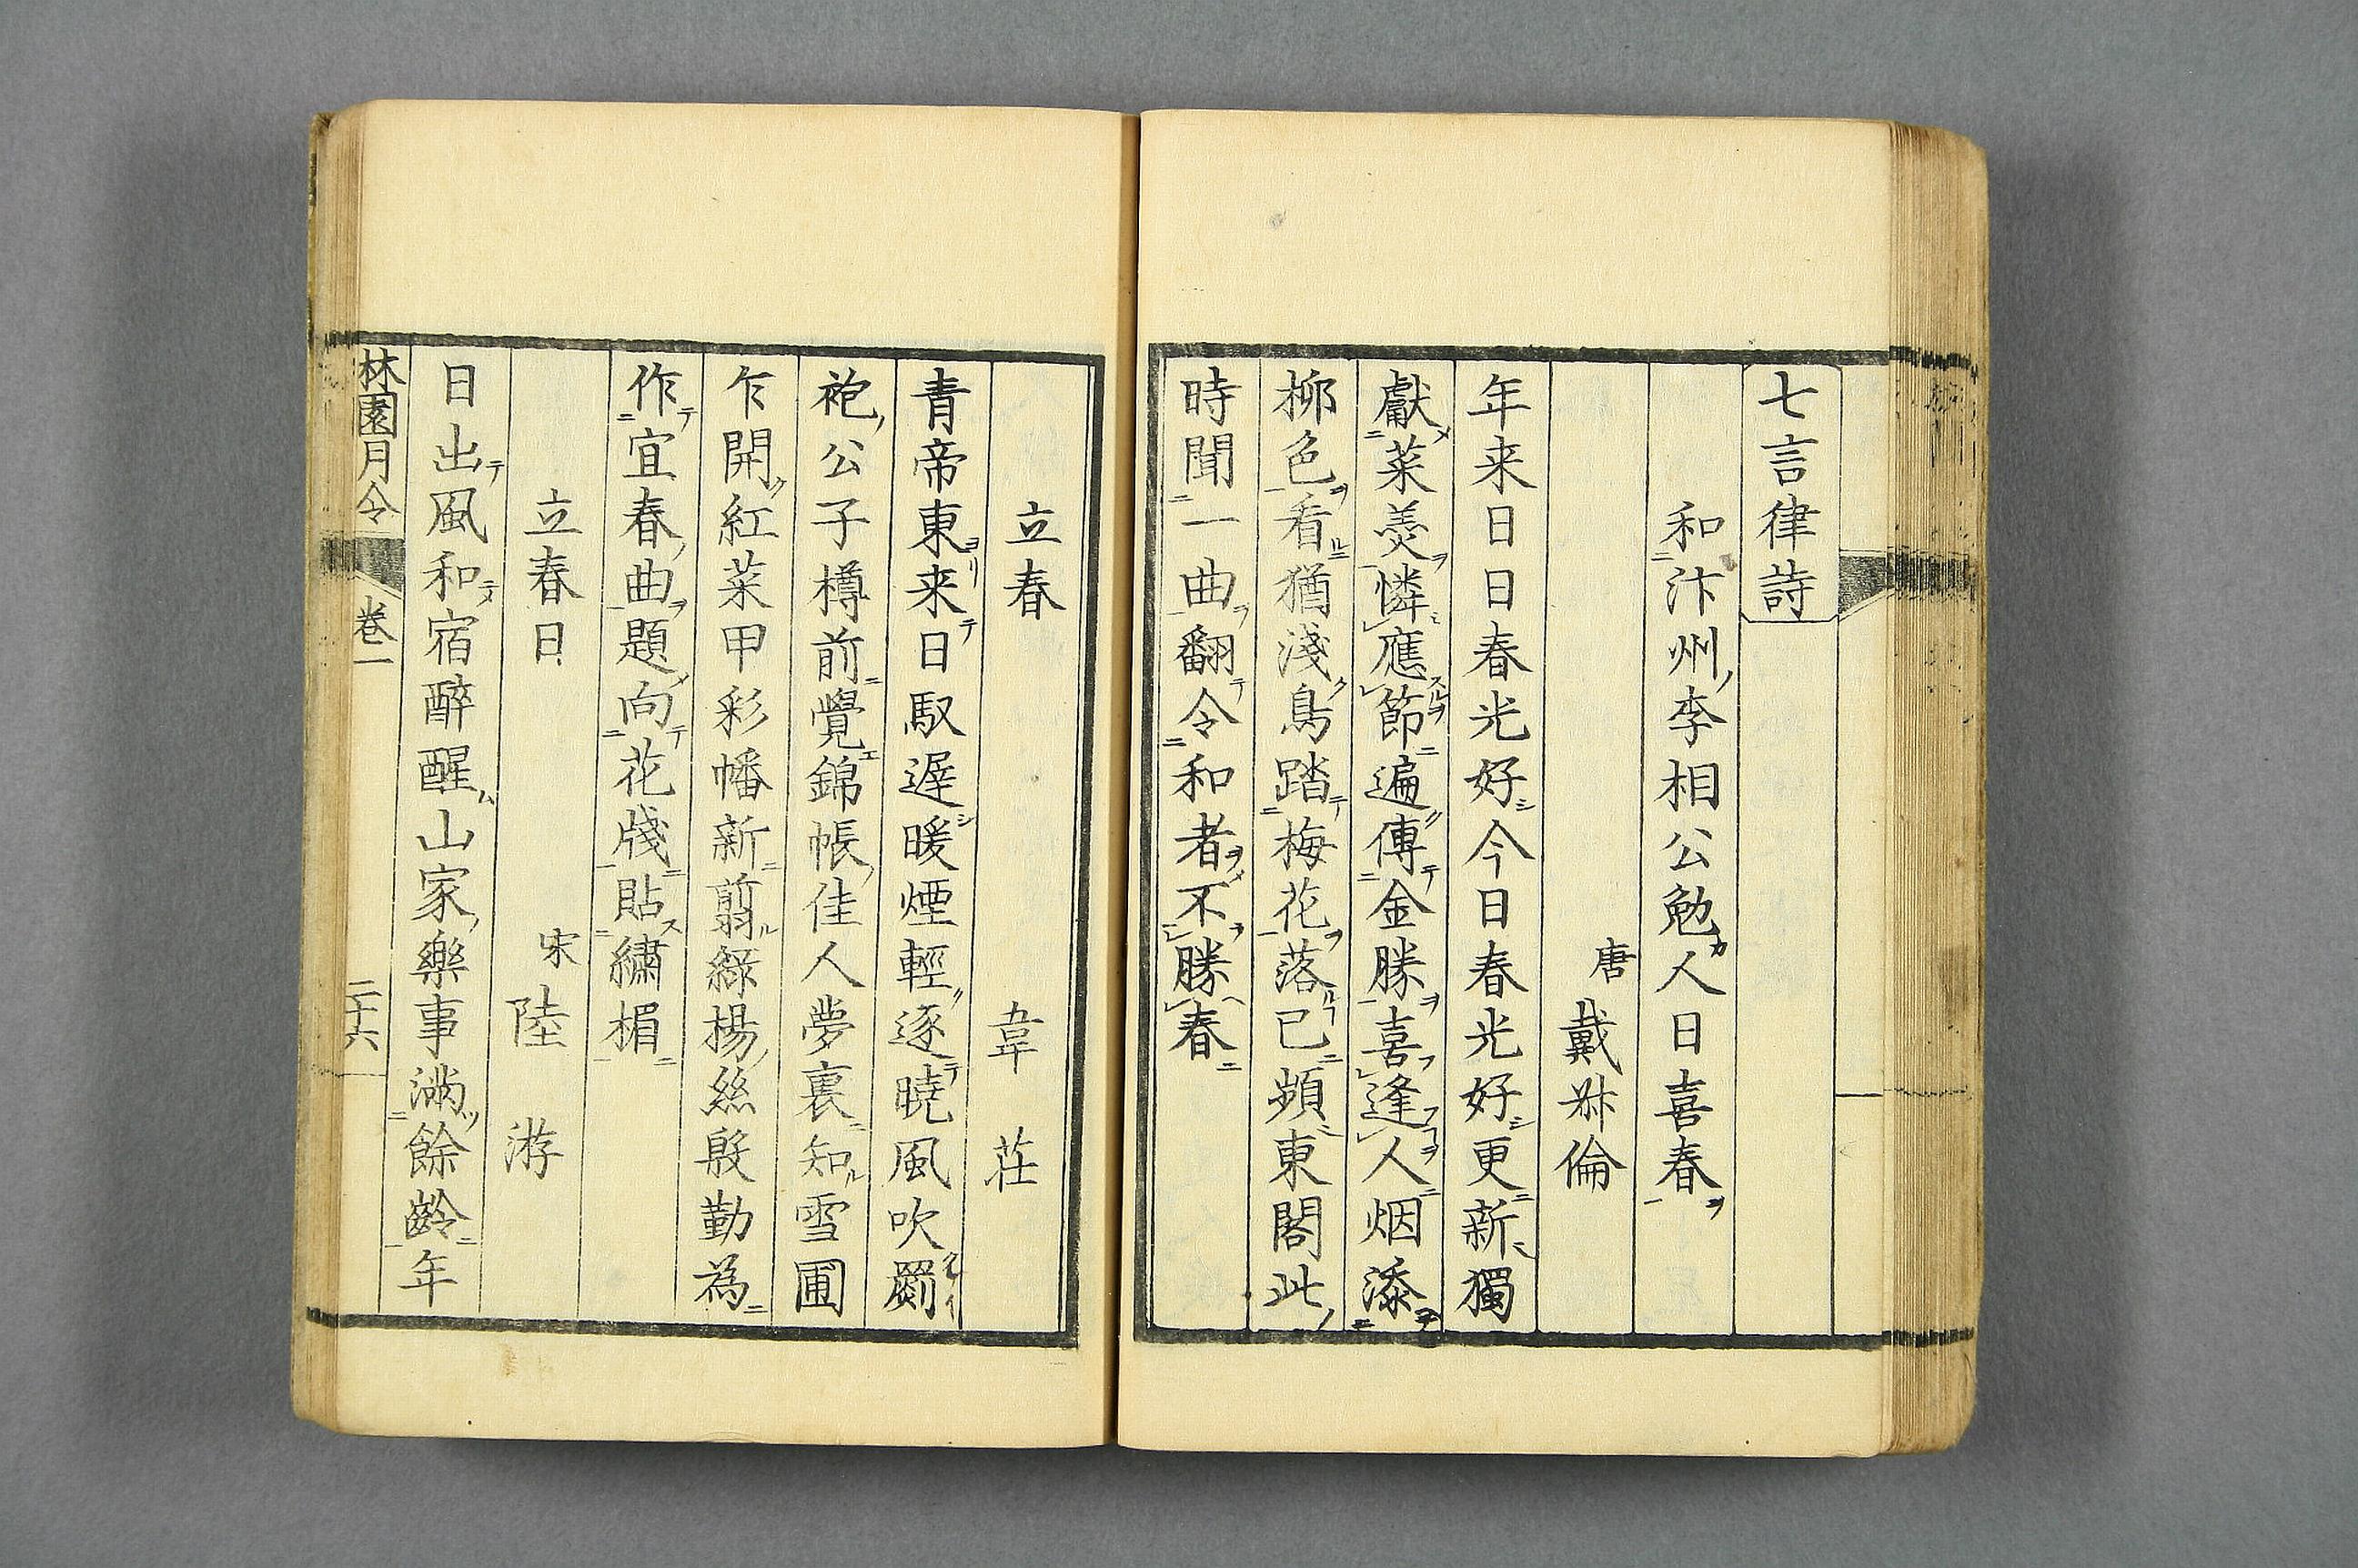 七言律詩
和汴州李相公勉人日喜春
唐 戴叔倫
年来日日春光好今日春光好更新獨
獻菜羮憐應節遍傳金勝喜逢人烟添
柳色看猶淺鳥踏梅花落已頻東閣此
時聞一曲翻令和者不勝春
立春 韋荘
青帝東来日馭遲暖煙輕逐曉風吹罽
袍公子樽前覺錦帳佳人夢裏知雪圃
乍開紅菜甲彩幡新翦綠楊絲殷勤為
作宜春曲題向花牋貼繡楣
立春日 宋 陸游
日出風和宿醉醒山家樂事滿餘齡年
林園月令 卷一 二十六